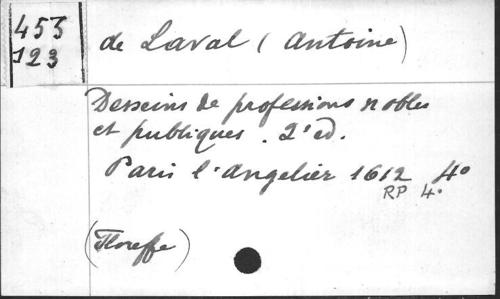 453
123
de Laval (Antoine)
Desseins de professions nobles
et publiques. 2e ed.
Paris l'Angelier 1612 4°
RP 4°
(Floreffe)